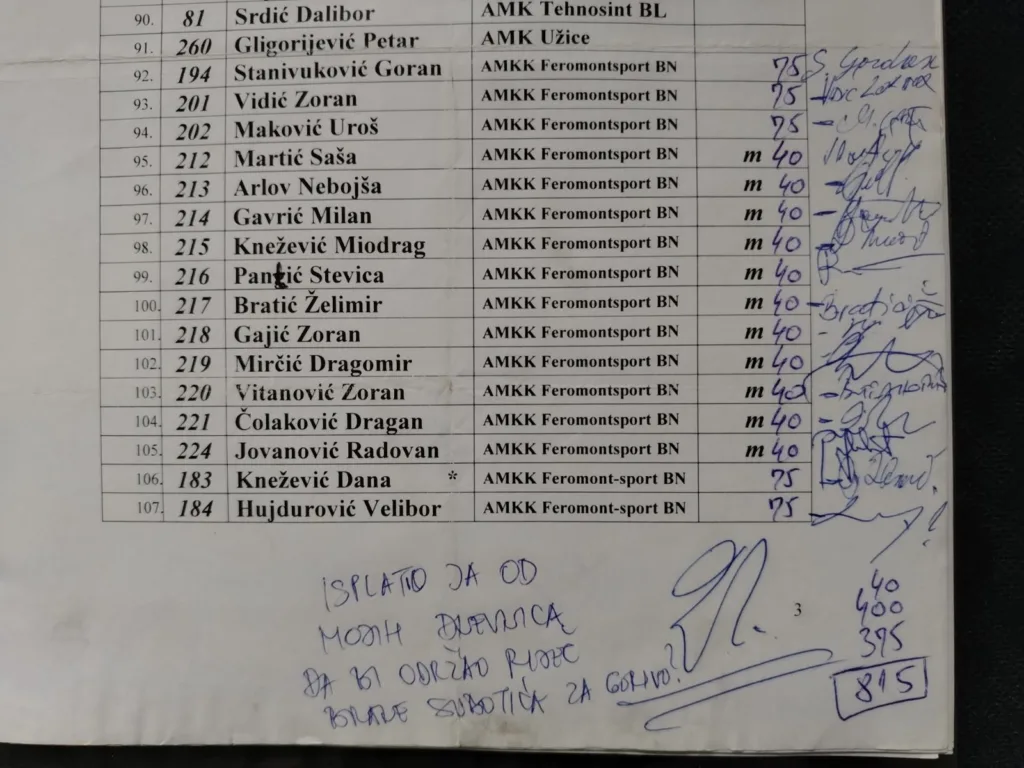 90. 81 Srdić Dalibor AMK Tehnosint BL
91. 260 Gligorijević Petar AMK Užice
92. 194 Stanivuković Goran AMKK Feromontsport BN 75 S. Gordan
93. 201 Vidić Zoran AMKK Feromontsport BN 75
94. 202 Maković Uroš AMKK Feromontsport BN 75
95. 212 Martić Saša AMKK Feromontsport BN m 40
96. 213 Arlov Nebojša AMKK Feromontsport BN m 40
97. 214 Gavrić Milan AMKK Feromontsport BN m 40
98. 215 Knežević Miodrag AMKK Feromontsport BN m 40
99. 216 Pantić Stevica AMKK Feromontsport BN m 40
100. 217 Bratić Želimir AMKK Feromontsport BN m 40
101. 218 Gajić Zoran AMKK Feromontsport BN m 40
102. 219 Mirčić Dragomir AMKK Feromontsport BN m 40
103. 220 Vitanović Zoran AMKK Feromontsport BN m 40
104. 221 Čolaković Dragan AMKK Feromontsport BN m 40
105. 224 Jovanović Radovan AMKK Feromontsport BN m 40
106. 183 Knežević Dana * AMKK Feromont-sport BN 75
107. 184 Hujdurović Velibor AMKK Feromont-sport BN 75
ISPLATIO JA OD
MOJIH DNEVNICA
DA BI ODRŽAO RIJEČ
BRAĆE SUBOTIĆA ZA GORIVO?
3
40
400
395
815